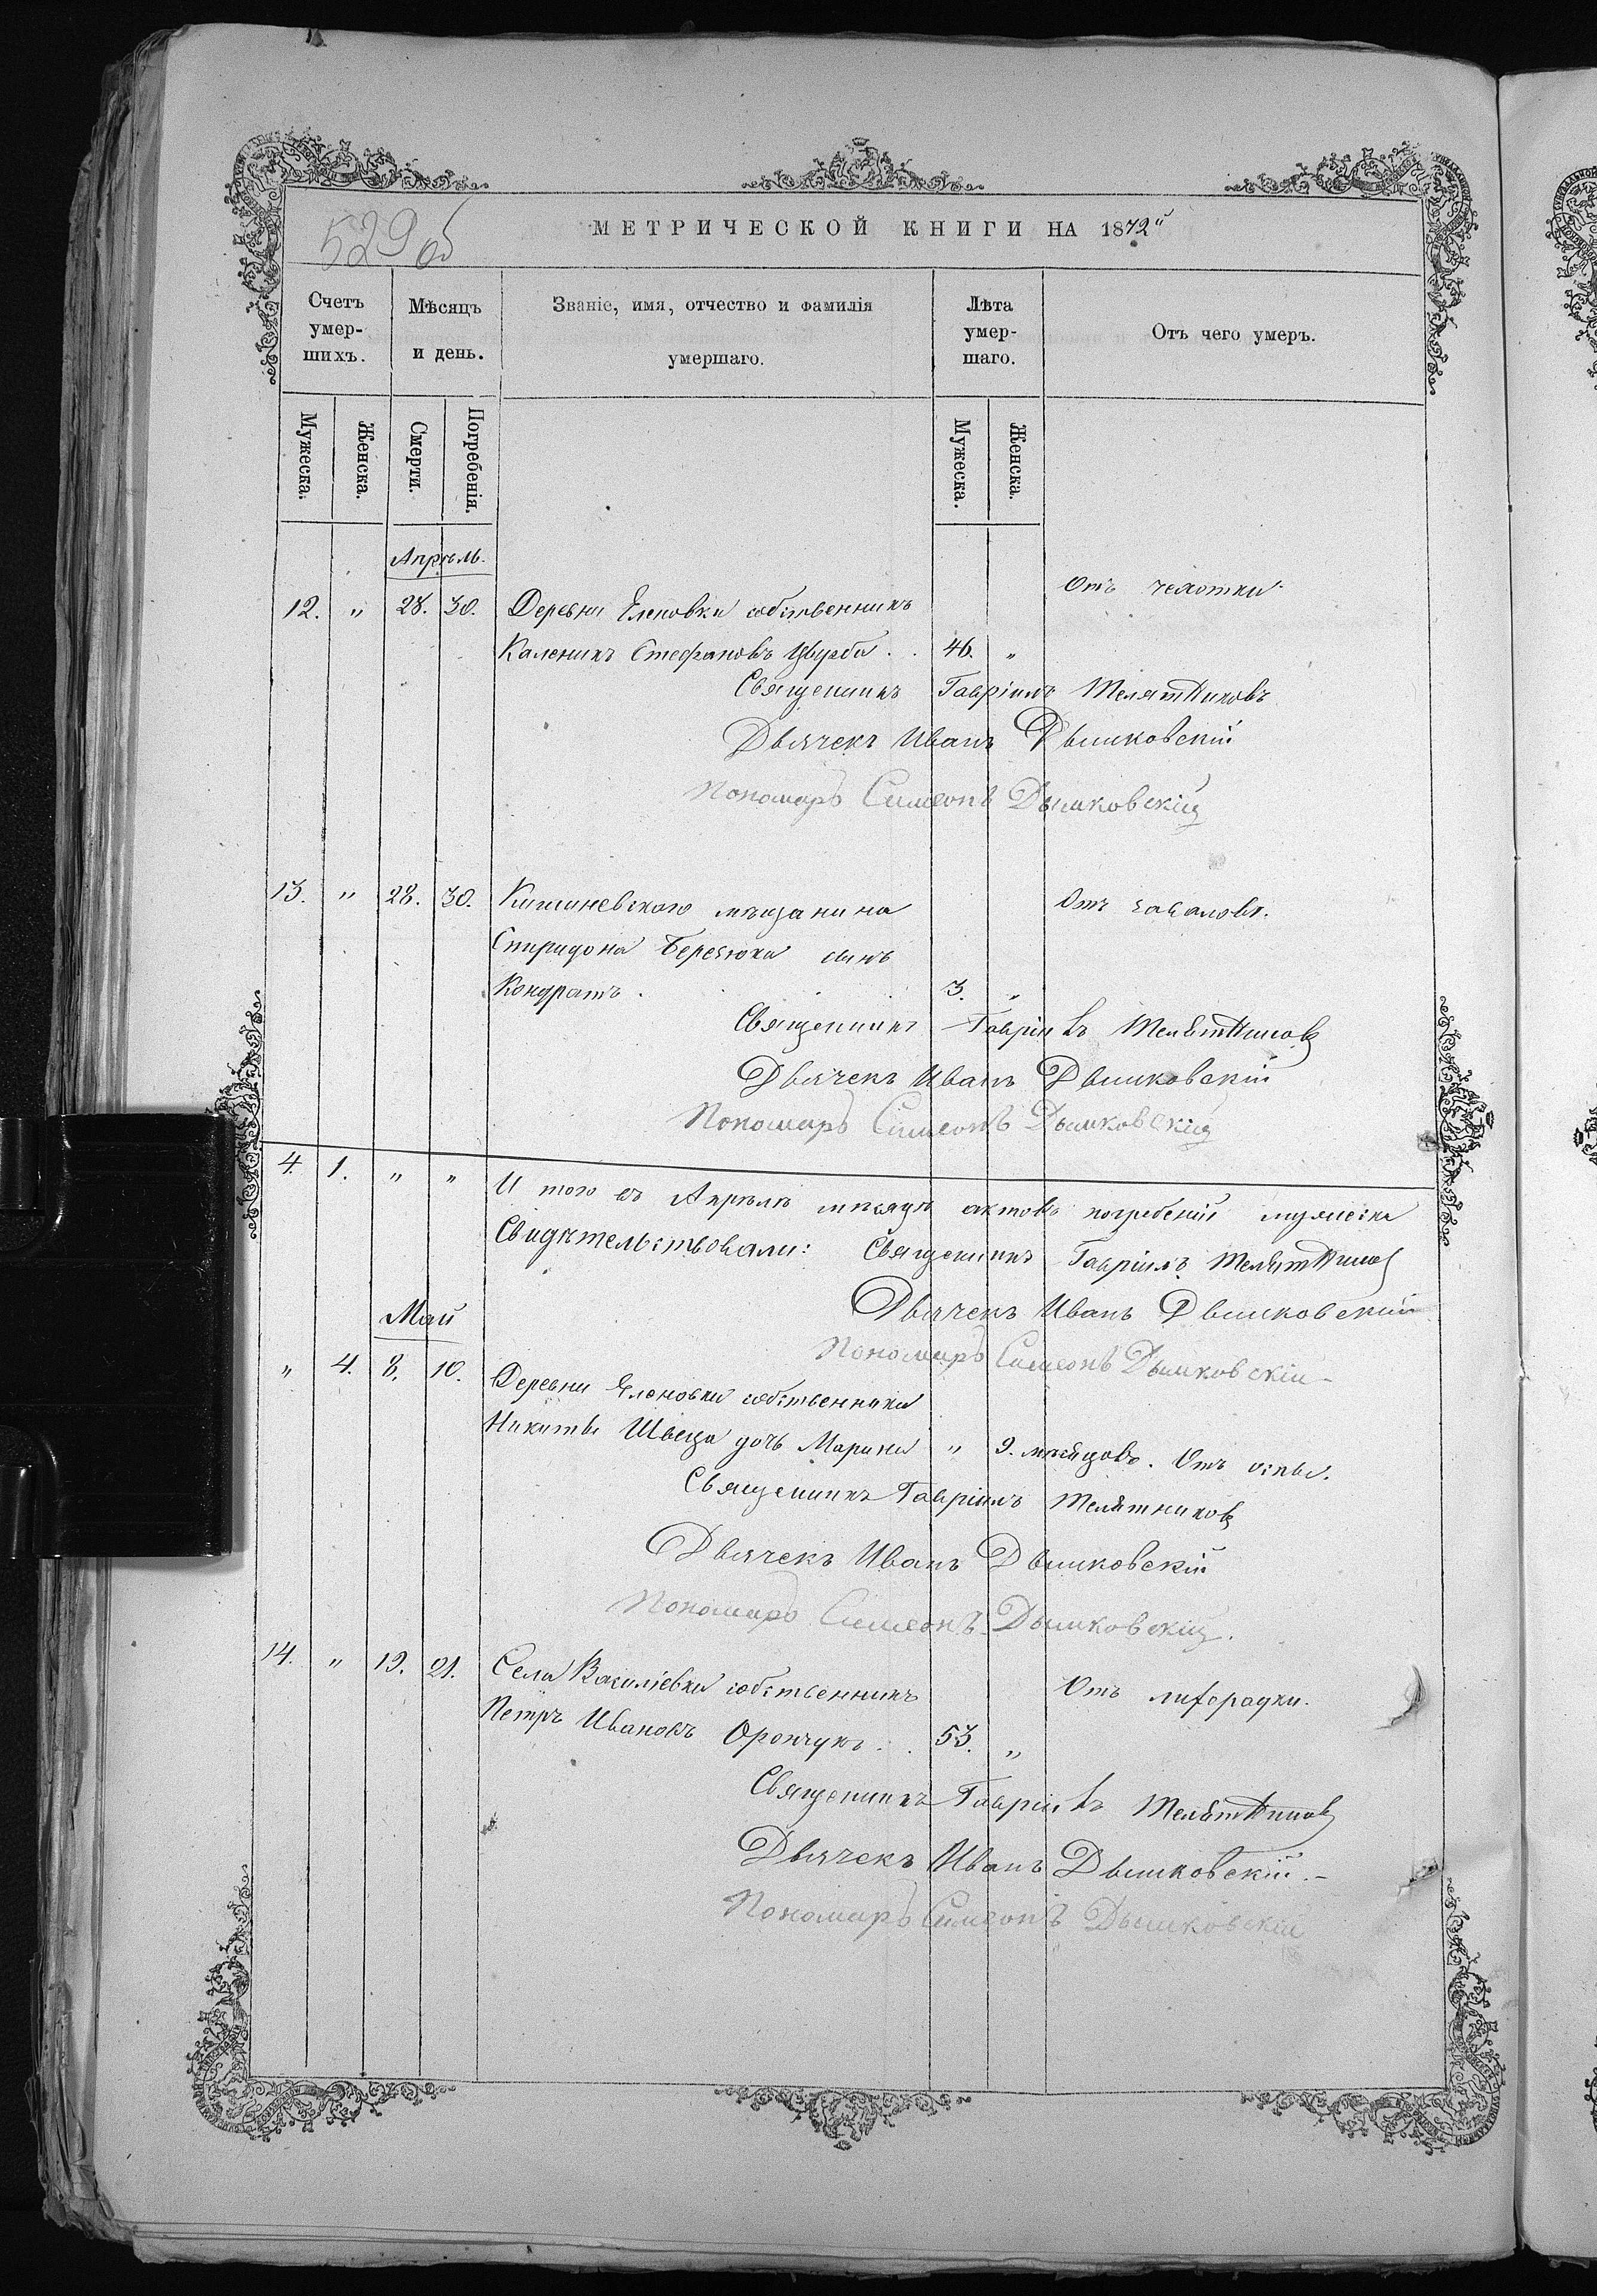 529 об
МЕТРИЧЕСКОЙ КНИГИ НА 1872й
Счетъ умер-шихъ.
Мѣсяцъ и день.
Званіе, имя, отчество и фамилія умершаго.
Лѣта умер-шаго.
Отъ чего умеръ.
Мужеска.
Женска.
Смерти.
Погребенія.
Мужеска.
Женска.
Апрѣль.
12. " 28. 30. Деревни Еленовки собственникъ Отъ чехотки.
Каленикъ Стефановъ . . 46. "
Священникъ Гавріилъ Телятниковъ
Дьячекъ Иванъ Дышковскій
Пономарь Симеонъ Дышковскій
13. " 28. 30. Кишиневскаго мѣщанина Отъ заваловъ.
Спиридона Березюка сынъ
Кондратъ . . . 3. "
Священникъ Гавріилъ Телятниковъ
Дьячекъ Иванъ Дышковскій
Пономарь Симеонъ Дышковскій
4. 1. " " И того въ Апрѣлѣ мѣсяцѣ актовъ погребеній мужеска
Свидѣтельствовали: Священникъ Гавріилъ Телятниковъ
Дьячекъ Иванъ Дышковскій
Пономарь Симеонъ Дышковскій -
Май
" 4. 8. 10. Деревни Еленовки собственника
Никиты Швеца дочь Марина " 9. мѣсяцовъ. Отъ оспы.
Священникъ Гавріилъ Телятниковъ
Дьячекъ Иванъ Дышковскій
Пономарь Симеонъ Дышковскій.
14. " 19. 21. Села Василіевки собственникъ Отъ лихорадки.
Петръ Ивановъ . . 53. "
Священникъ Гавріилъ Телятниковъ
Дьячекъ Иванъ Дышковскій. -
Пономарь Симеонъ Дышковскій